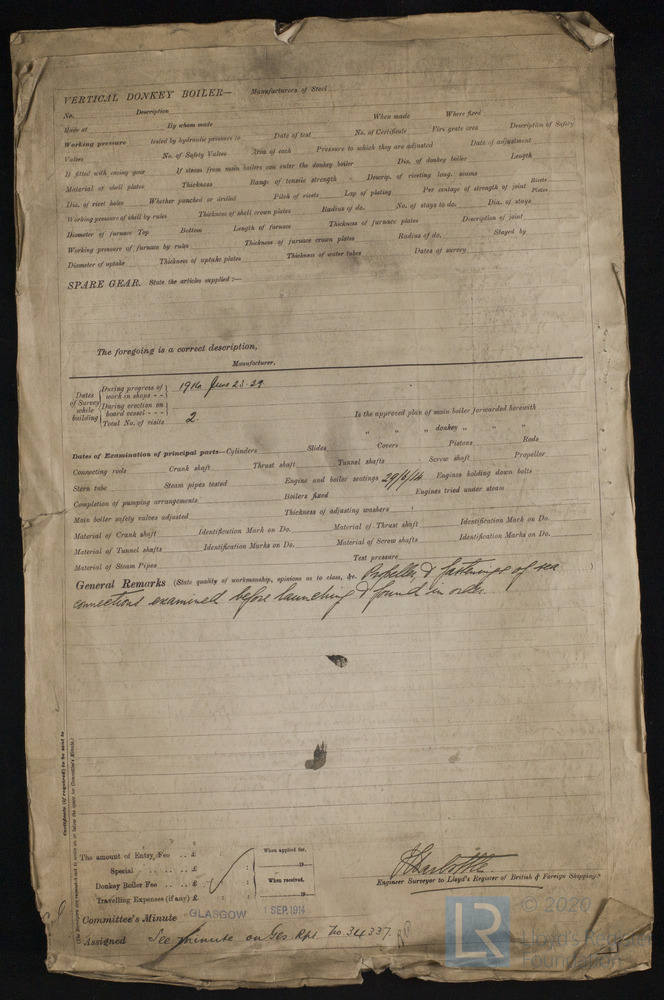 VERTICAL DONKEY BOILER— Manufacturers of Steel
No. Description
Made at By whom made When made Where fixed
Working pressure tested by hydraulic pressure to Date of test No. of Certificate Fire grate area Description of Safety
Valves No. of Safety Valves Area of each Pressure to which they are adjusted Date of adjustment
If fitted with easing gear If steam from main boilers can enter the donkey boiler Dia. of donkey boiler Length
Material of shell plates Thickness Range of tensile strength Descrip. of riveting long. seams
Dia. of rivet holes Whether punched or drilled Pitch of rivets Lap of plating Per centage of strength of joint Rivets Plates
Working pressure of shell by rules Thickness of shell crown plates Radius of do. No. of stays to do. Dia. of stays
Diameter of furnace Top Bottom Length of furnace Thickness of furnace plates Description of joint
Working pressure of furnace by rules Thickness of furnace crown plates Radius of do. Stayed by
Diameter of uptake Thickness of uptake plates Thickness of water tubes Dates of survey
SPARE GEAR. State the articles supplied:—
The foregoing is a correct description,
Manufacturer.
Dates of Survey while building
During progress of work in shops - - 1914 June 23. 29
During erection on board vessel - - -
Total No. of visits 2
Is the approved plan of main boiler forwarded herewith
" " " donkey " " "
Dates of Examination of principal parts—Cylinders Slides Covers Pistons Rods
Connecting rods Crank shaft Thrust shaft Tunnel shafts Screw shaft Propeller
Stern tube Steam pipes tested Engine and boiler seatings 29/6/14 Engines holding down bolts
Completion of pumping arrangements Boilers fixed Engines tried under steam
Main boiler safety valves adjusted Thickness of adjusting washers
Material of Crank shaft Identification Mark on Do. Material of Thrust shaft Identification Mark on Do.
Material of Tunnel shafts Identification Marks on Do. Material of Screw shafts Identification Marks on Do.
Material of Steam Pipes Test pressure
General Remarks (State quality of workmanship, opinions as to class, &c. Propeller, & fastenings of sea
connections examined before launching & found in order.
Certificate (if required) to be sent to
(The Surveyors are requested not to write on or below the space for Committee's Minute.)
The amount of Entry Fee .. £ : : When applied for,
Special .. .. £ : : 19
Donkey Boiler Fee .. .. £ : : When received,
Travelling Expenses (if any) £ : : 19
Engineer Surveyor to Lloyd's Register of British & Foreign Shipping.
Committee's Minute GLASGOW 1 SEP. 1914
Assigned See minute on Gls. Rpt. No. 34337.
LR
© 2020
Lloyd's Register
Foundation